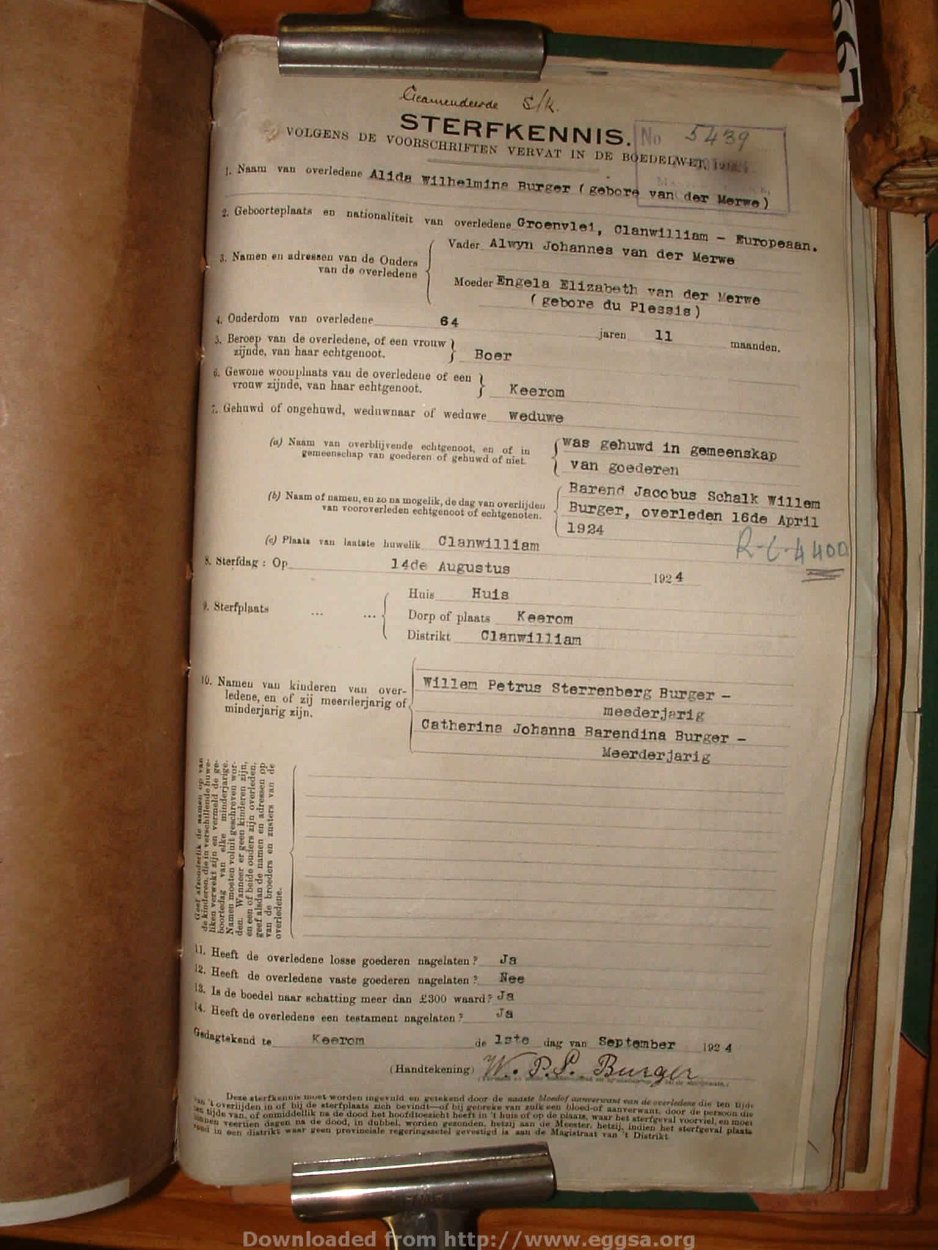 Geamendeerde S/K.
STERFKENNIS.
No 5439
VOLGENS DE VOORSCHRIFTEN VERVAT IN DE BOEDELWET,
1. Naam van overledene Alida Wilhelmina Burger (gebore van der Merwe)
2. Geboorteplaats en nationaliteit van overledene Groenvlei, Clanwilliam - Europeaan.
3. Namen en adressen van de Ouders van de overledene
Vader Alwyn Johannes van der Merwe
Moeder Engela Elizabeth van der Merwe
(gebore du Plessis)
4. Ouderdom van overledene 64 jaren 11 maanden.
5. Beroep van de overledene, of een vrouw
zijnde, van haar echtgenoot. Boer
6. Gewone woonplaats van de overledene of een
vrouw zijnde, van haar echtgenoot. Keerom
7. Gehuwd of ongehuwd, weduwnaar of weduwe weduwe
(a) Naam van overblijvende echtgenoot, en of in
gemeenschap van goederen of gehuwd of niet.
was gehuwd in gemeenskap
van goederen
(b) Naam of namen, en zo na mogelik, de dag van overlijden
van vooroverleden echtgenoot of echtgenoten.
Barend Jacobus Schalk Willem
Burger, overleden 16de April
1924
(c) Plaats van laatste huwelik Clanwilliam
R-L-4400
8. Sterfdag : Op 14de Augustus 1924
9. Sterfplaats ... ...
Huis Huis
Dorp of plaats Keerom
Distrikt Clanwilliam
10. Namen van kinderen van over-
ledene, en of zij meerderjarig of
minderjarig zijn.
Willem Petrus Sterrenberg Burger -
meederjarig
Catherina Johanna Barendina Burger -
Meerderjarig
Geef afzonderlik de namen op van
de kinderen, die in verschillende huwe-
liken verwekt zijn en vermeld de ge-
boortedag van elke minderjarige.
Namen moeten voluit geschreven wor-
den. Wanneer er geen kinderen zijn,
en een of beide ouders zijn overleden,
geef alsdan de namen en adressen op
van de broeders en zusters van de
overledene.
11. Heeft de overledene losse goederen nagelaten? Ja
12. Heeft de overledene vaste goederen nagelaten? Nee
13. Is de boedel naar schatting meer dan £300 waard? Ja
14. Heeft de overledene een testament nagelaten? Ja
Gedagtekend te Keerom de 1ste dag van September 1924
(Handtekening) W. P. S. Burger
Deze sterfkennis moet worden ingevuld en getekend door de naaste bloedof aanverwant van de overledene die ten tijde
van 't overlijden in of bij de sterfplaats zich bevindt—of bij gebreke van zulk een bloed-of aanverwant, door de persoon die
ten tijde van, of onmiddellik na de dood het hoofdtoezicht heeft in 't huis of op de plaats, waar het sterfgeval voorviel, en moet
binnen veertien dagen na de dood, in dubbel, worden gezonden, hetzij aan de Meester, hetzij, indien het sterfgeval plaats
vond in een distrikt waar geen provinciale regeringszetel gevestigd is aan de Magistraat van 't Distrikt.
Downloaded from http://www.eggsa.org